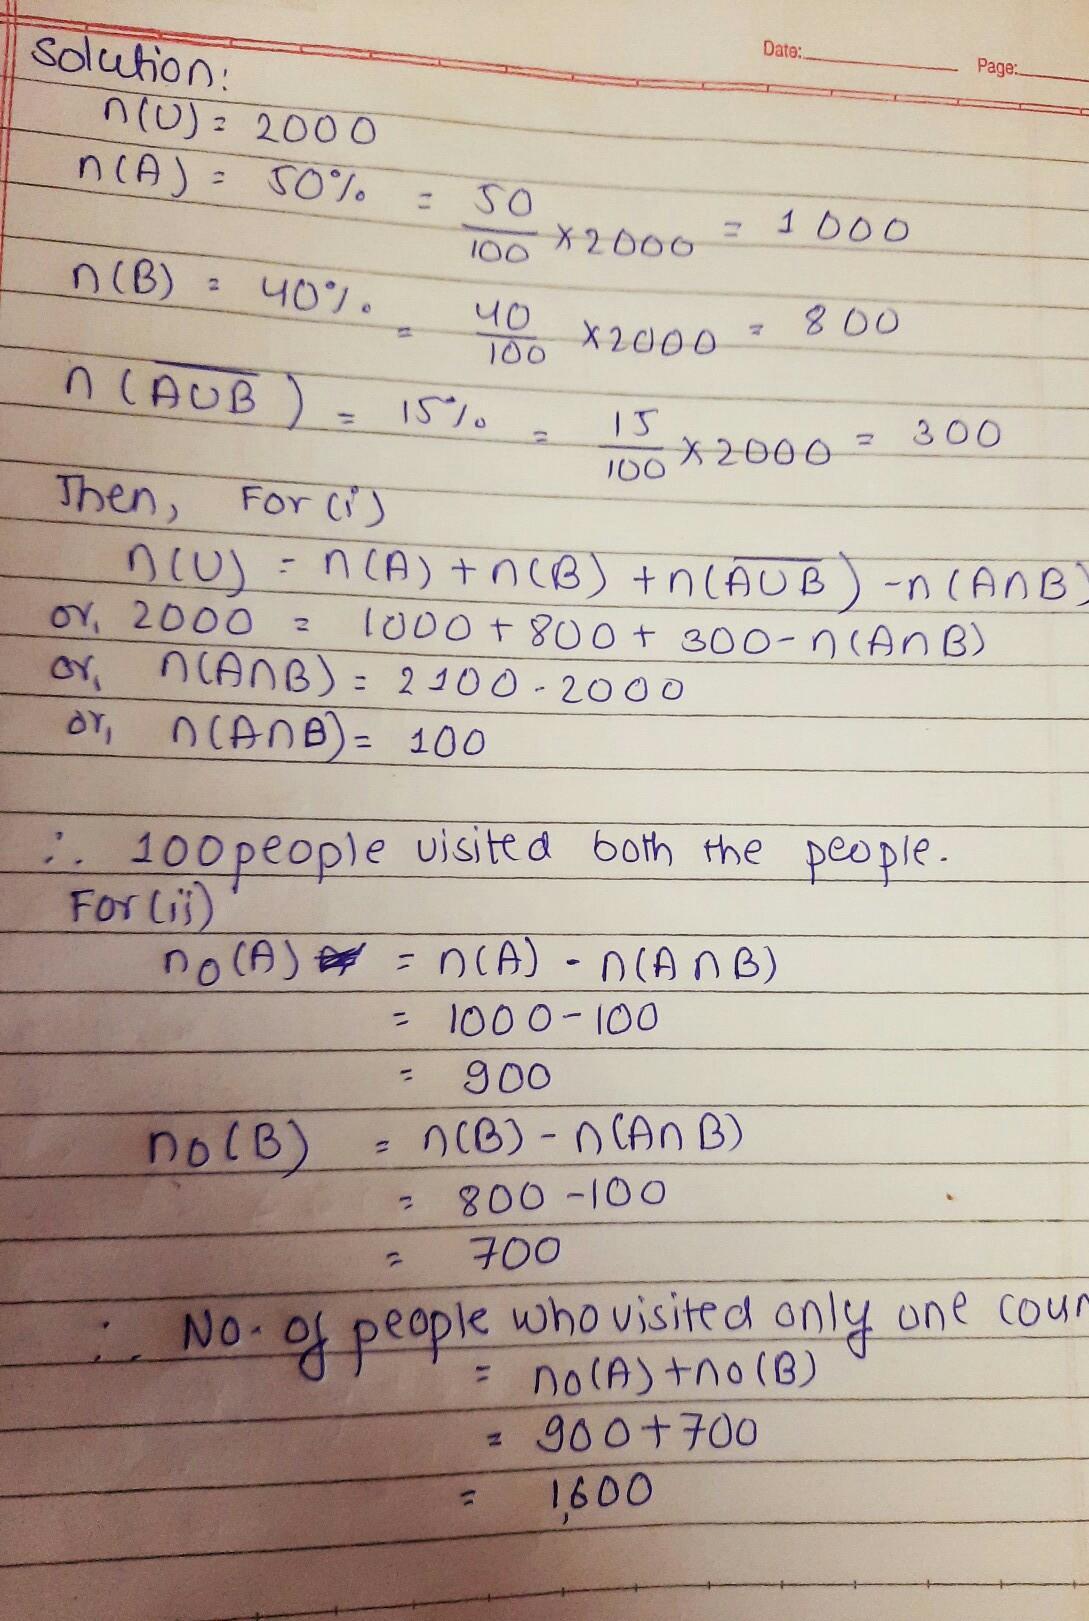 Date:
Page:
Solution:
n(U) = 2000
n(A) = 50% = 50/100 × 2000 = 1000
n(B) = 40% = 40/100 × 2000 = 800
n(A̅∪̅B̅) = 15% = 15/100 × 2000 = 300
Then, For (i)
n(U) = n(A) + n(B) + n(A̅∪̅B̅) - n(A∩B)
or, 2000 = 1000 + 800 + 300 - n(A∩B)
or, n(A∩B) = 2100 - 2000
or, n(A∩B) = 100
∴ 100 people visited both the people.
For (ii)
no(A) = n(A) - n(A∩B)
= 1000 - 100
= 900
no(B) = n(B) - n(A∩B)
= 800 - 100
= 700
∴ No. of people who visited only one coun
= no(A) + no(B)
= 900 + 700
= 1,600